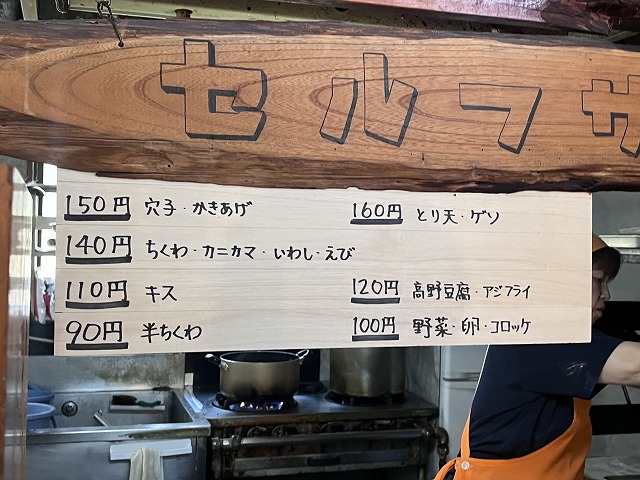 セルフサ
150円 穴子・かきあげ
160円 とり天・ゲソ
140円 ちくわ・カニカマ・いわし・えび
110円 キス
120円 高野豆腐・アジフライ
90円 半ちくわ
100円 野菜・卵・コロッケ